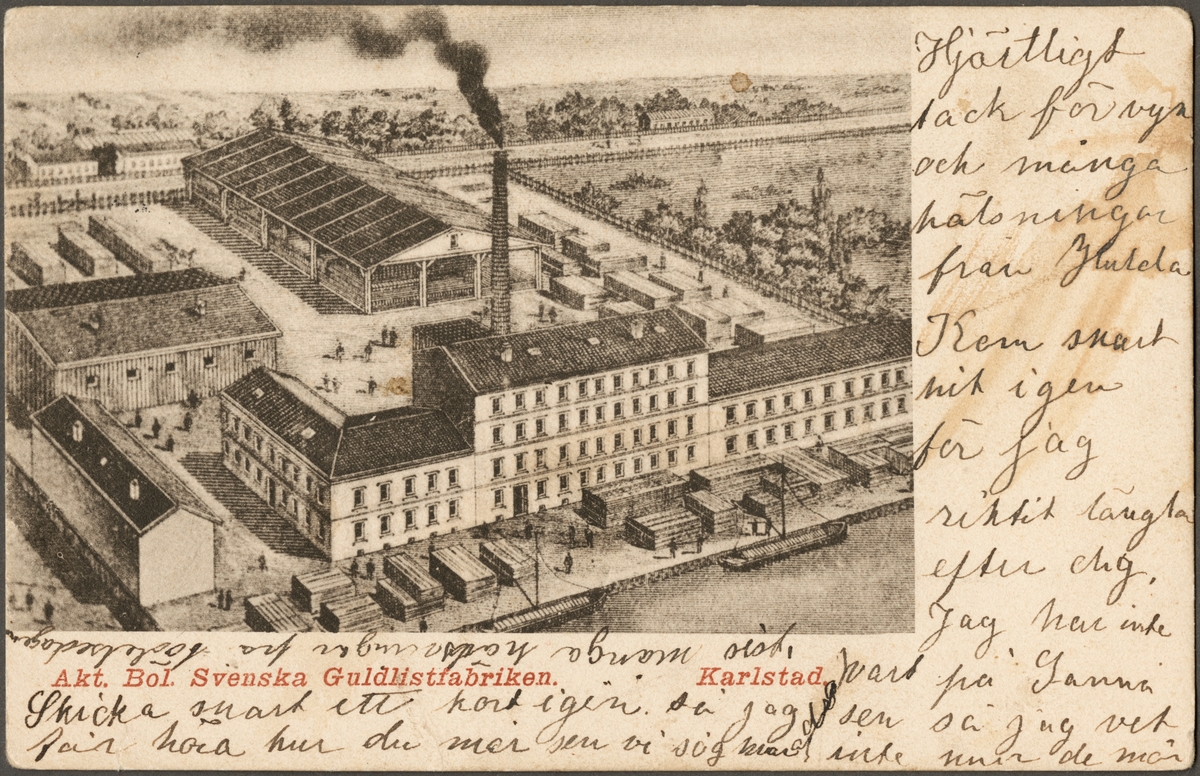 Hjärtligt
tack för vyn
och många
hälsningar
från Hulda
Kom snart
hit igen
för jag
riktit längta
efter dig,
Jag har inte
vart på Sanna
sen så jag vet
inte nur de mår
sist, många hälsningar på födelsedagen
Akt. Bol. Svenska Guldlistfabriken. Karlstad.
Skicka snart ett kort igen. så jag
får höra hur du mår sen vi såg